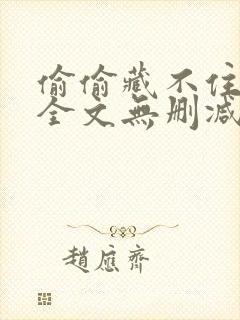 偷偷藏不住
全文無刪减
趙應齊